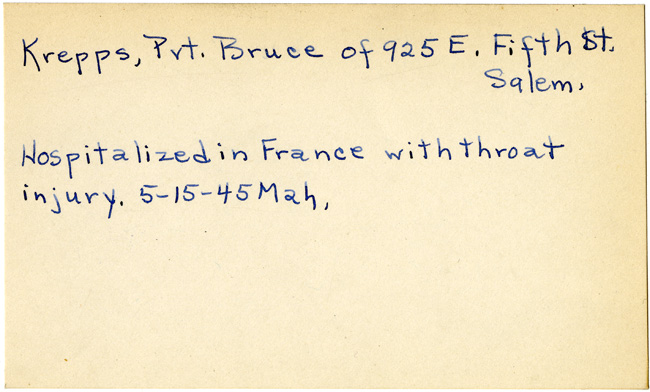 Krepps, Pvt. Bruce of 925 E. Fifth St.
Salem,
Hospitalized in France with throat
injury. 5-15-45 Mah,